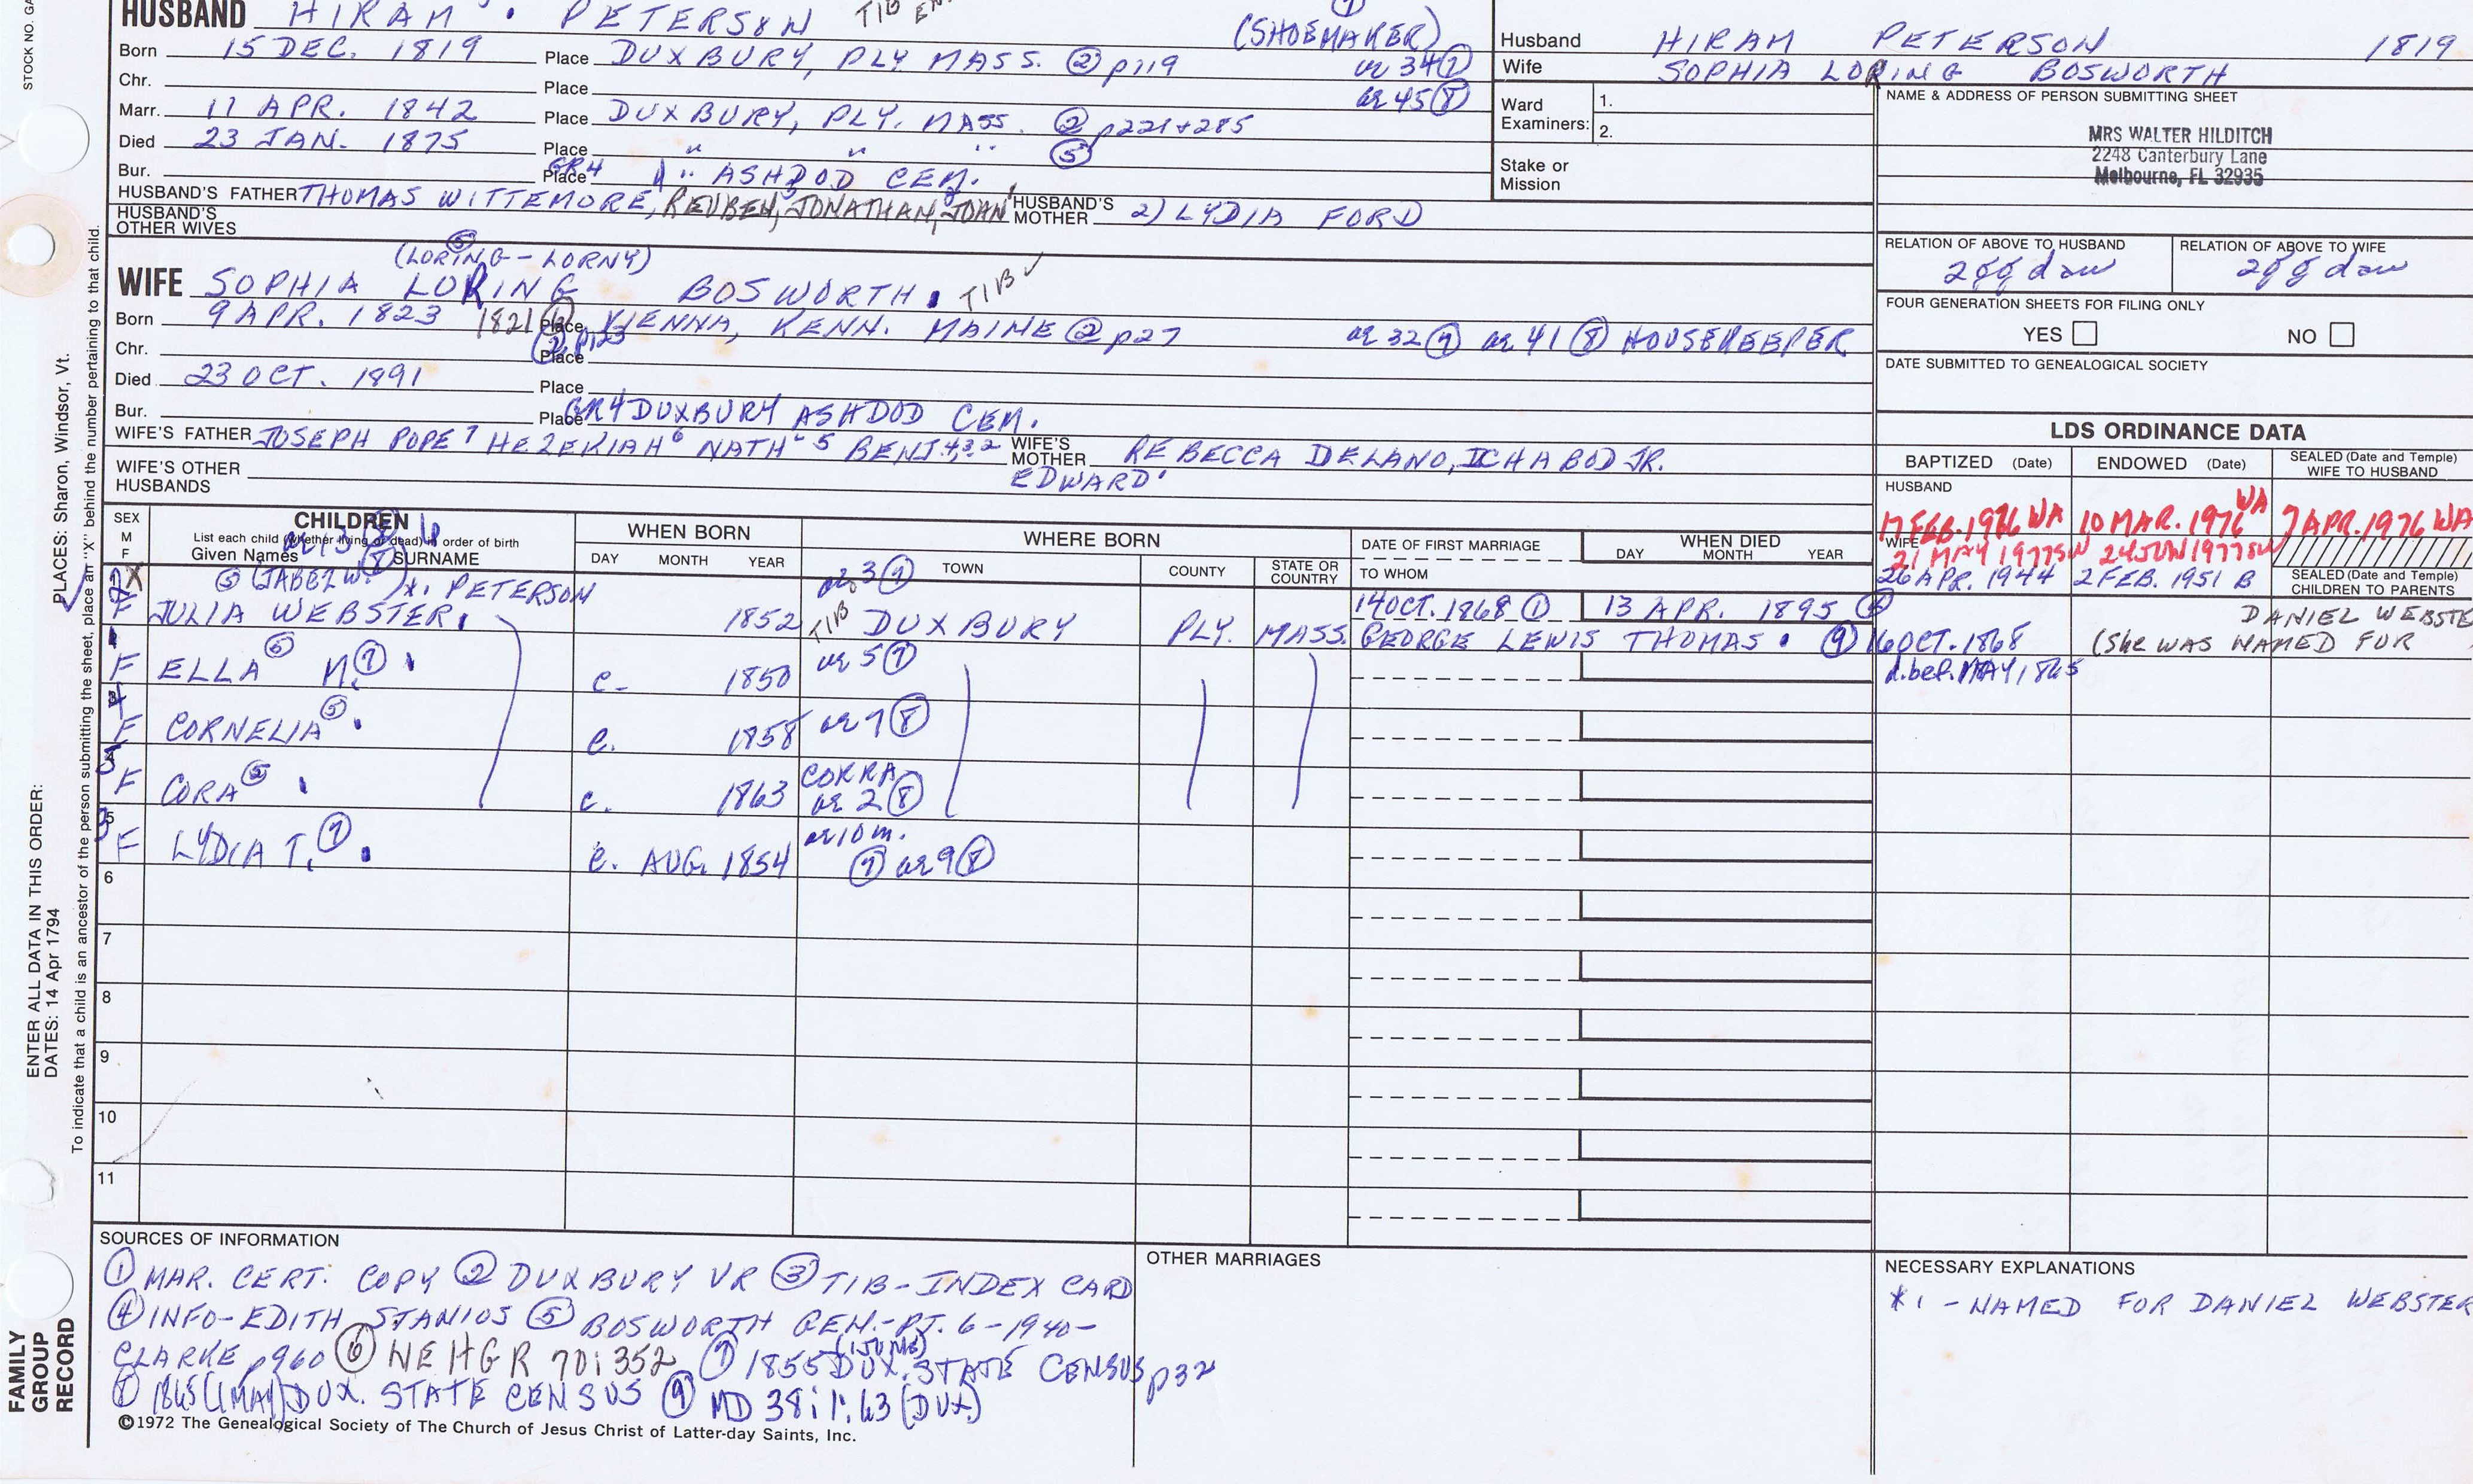 STOCK NO. GA
HUSBAND HIRAM PETERSON TIB
(SHOEMAKER)
Born 15 DEC. 1819 Place DUXBURY, PLY. MASS. ② p119 ae 34 ⑦
Chr. Place ae 45 ⑧
Marr. 11 APR. 1842 Place DUXBURY, PLY. MASS. ② p221+285
Died 23 JAN. 1875 Place " " " ⑤
Bur. Place GR4 " ASHDOD CEM.
HUSBAND'S FATHER THOMAS WITTEMORE, REUBEN, JONATHAN, JOHN HUSBAND'S MOTHER 2) LYDIA FORD
HUSBAND'S OTHER WIVES
Husband HIRAM PETERSON 1819
Wife SOPHIA LORING BOSWORTH
Ward Examiners: 1.
2.
Stake or Mission
NAME & ADDRESS OF PERSON SUBMITTING SHEET
MRS WALTER HILDITCH
2248 Canterbury Lane
Melbourne, FL 32935
RELATION OF ABOVE TO HUSBAND RELATION OF ABOVE TO WIFE
2gg dau 2gg dau
FOUR GENERATION SHEETS FOR FILING ONLY
YES NO
DATE SUBMITTED TO GENEALOGICAL SOCIETY
(LORING - LORNY) ⑤
WIFE SOPHIA LORING BOSWORTH. TIB ✓
Born 9 APR. 1823 1821 Place VIENNA, KENN. MAINE ② p27 ae 32 ⑦ ae 41 ⑧ HOUSEKEEPER
Chr. ② p123 Place
Died 23 OCT. 1891 Place
Bur. Place GR4 DUXBURY ASHDOD CEM.
WIFE'S FATHER JOSEPH POPE 7 HEZEKIAH 6 NATH 5 BENJ. 4,3,2 WIFE'S MOTHER REBECCA DELANO, ICHABOD JR.
EDWARD 1
WIFE'S OTHER HUSBANDS
LDS ORDINANCE DATA
BAPTIZED (Date) ENDOWED (Date) SEALED (Date and Temple) WIFE TO HUSBAND
HUSBAND
17 FEB. 1976 WA 10 MAR. 1976 WA 7 APR. 1976 WA
WIFE
21 MAY 1977 24 JUN 1977
SEX M F
CHILDREN
List each child (whether living or dead) in order of birth
Given Names SURNAME
WHEN BORN
DAY MONTH YEAR
WHERE BORN
TOWN COUNTY STATE OR COUNTRY
DATE OF FIRST MARRIAGE
TO WHOM
WHEN DIED
DAY MONTH YEAR
SEALED (Date and Temple) CHILDREN TO PARENTS
26 APR. 1944 2 FEB. 1951 B
X ⑤ (JABEZ W.) *1 PETERSON ae 3 ⑦
F JULIA WEBSTER. 1852 TIB DUXBURY PLY. MASS. 14 OCT. 1868 ① 13 APR. 1895 ④
GEORGE LEWIS THOMAS. ⑨ 16 OCT. 1868 (She WAS NAMED FOR
DANIEL WEBSTE
1 F ELLA ⑥ M. ⑦ c- 1850 ae 5 ⑦ d. bef. MAY 1865
4 F CORNELIA ⑤ c. 1858 ae 7 ⑧
5 F CORA ⑤ c. 1863 CORRA ae 2 ⑧
3 F LYDIA T. ⑦ c. AUG. 1854 ae 10 m. ⑦ ae 9 ⑧
6
7
8
9
10
11
SOURCES OF INFORMATION
① MAR. CERT. COPY ② DUXBURY VR ③ TIB-INDEX CARD
④ INFO-EDITH STANIOS ⑤ BOSWORTH GEN.-PT. 6-1940-
CLARKE p960 ⑥ NEHGR 70:352 ⑦ 1855 DUX. STATE CENSUS p32
⑧ 1865 (1 MAY) DUX. STATE CENSUS ⑨ MD 38:1:63 (DUX.)
©1972 The Genealogical Society of The Church of Jesus Christ of Latter-day Saints, Inc.
OTHER MARRIAGES
NECESSARY EXPLANATIONS
*1 - NAMED FOR DANIEL WEBSTER
PLACES: Sharon, Windsor, Vt.
To indicate that a child is an ancestor of the person submitting the sheet, place an "X" behind the number pertaining to that child.
ENTER ALL DATA IN THIS ORDER:
DATES: 14 Apr 1794
FAMILY GROUP RECORD